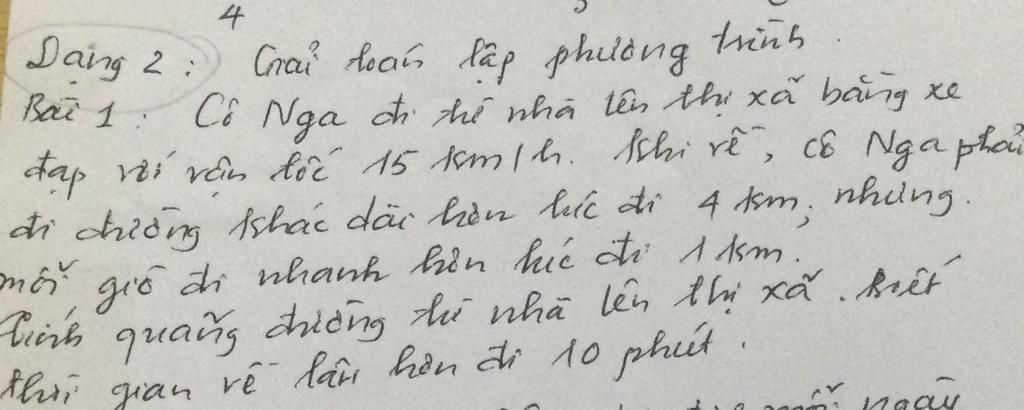 4
Dạng 2: Giải toán lập phương trình.
Bài 1: Cô Nga đi từ nhà lên thị xã bằng xe
đạp với vận tốc 15 km/h. Khi về, cô Nga phải
đi đường khác dài hơn lúc đi 4 km, nhưng
mỗi giờ đi nhanh hơn lúc đi 1 km.
Tính quãng đường từ nhà lên thị xã. Biết
thời gian về lâu hơn đi 10 phút.
mỗi ngày